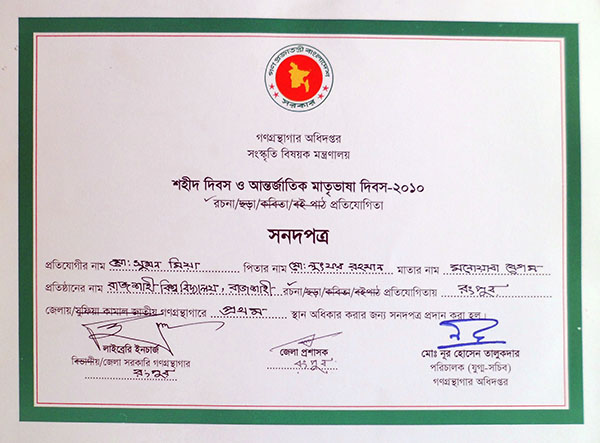 গণপ্রজাতন্ত্রী বাংলাদেশ
সরকার
গণগ্রন্থাগার অধিদপ্তর
সংস্কৃতি বিষয়ক মন্ত্রণালয়
শহীদ দিবস ও আন্তর্জাতিক মাতৃভাষা দিবস-২০১০
রচনা/ছড়া/কবিতা/বই পাঠ প্রতিযোগিতা
সনদপত্র
প্রতিযোগীর নাম মো: সুমন মিয়া পিতার নাম মো: রহমান মাতার নাম মনোয়ারা বেগম
প্রতিষ্ঠানের নাম রাজশাহী বিশ্ববিদ্যালয়, রাজশাহী রচনা/ছড়া/কবিতা/বইপাঠ প্রতিযোগিতায় রংপুর
জেলায়/সুফিয়া কামাল জাতীয় গণগ্রন্থাগারে প্রথম স্থান অধিকার করার জন্য সনদপত্র প্রদান করা হল।
লাইব্রেরি ইনচার্জ জেলা প্রশাসক মোঃ নূর হোসেন তালুকদার
বিভাগীয়/জেলা সরকারি গণগ্রন্থাগার রংপুর পরিচালক (যুগ্ম-সচিব)
রংপুর গণগ্রন্থাগার অধিদপ্তর